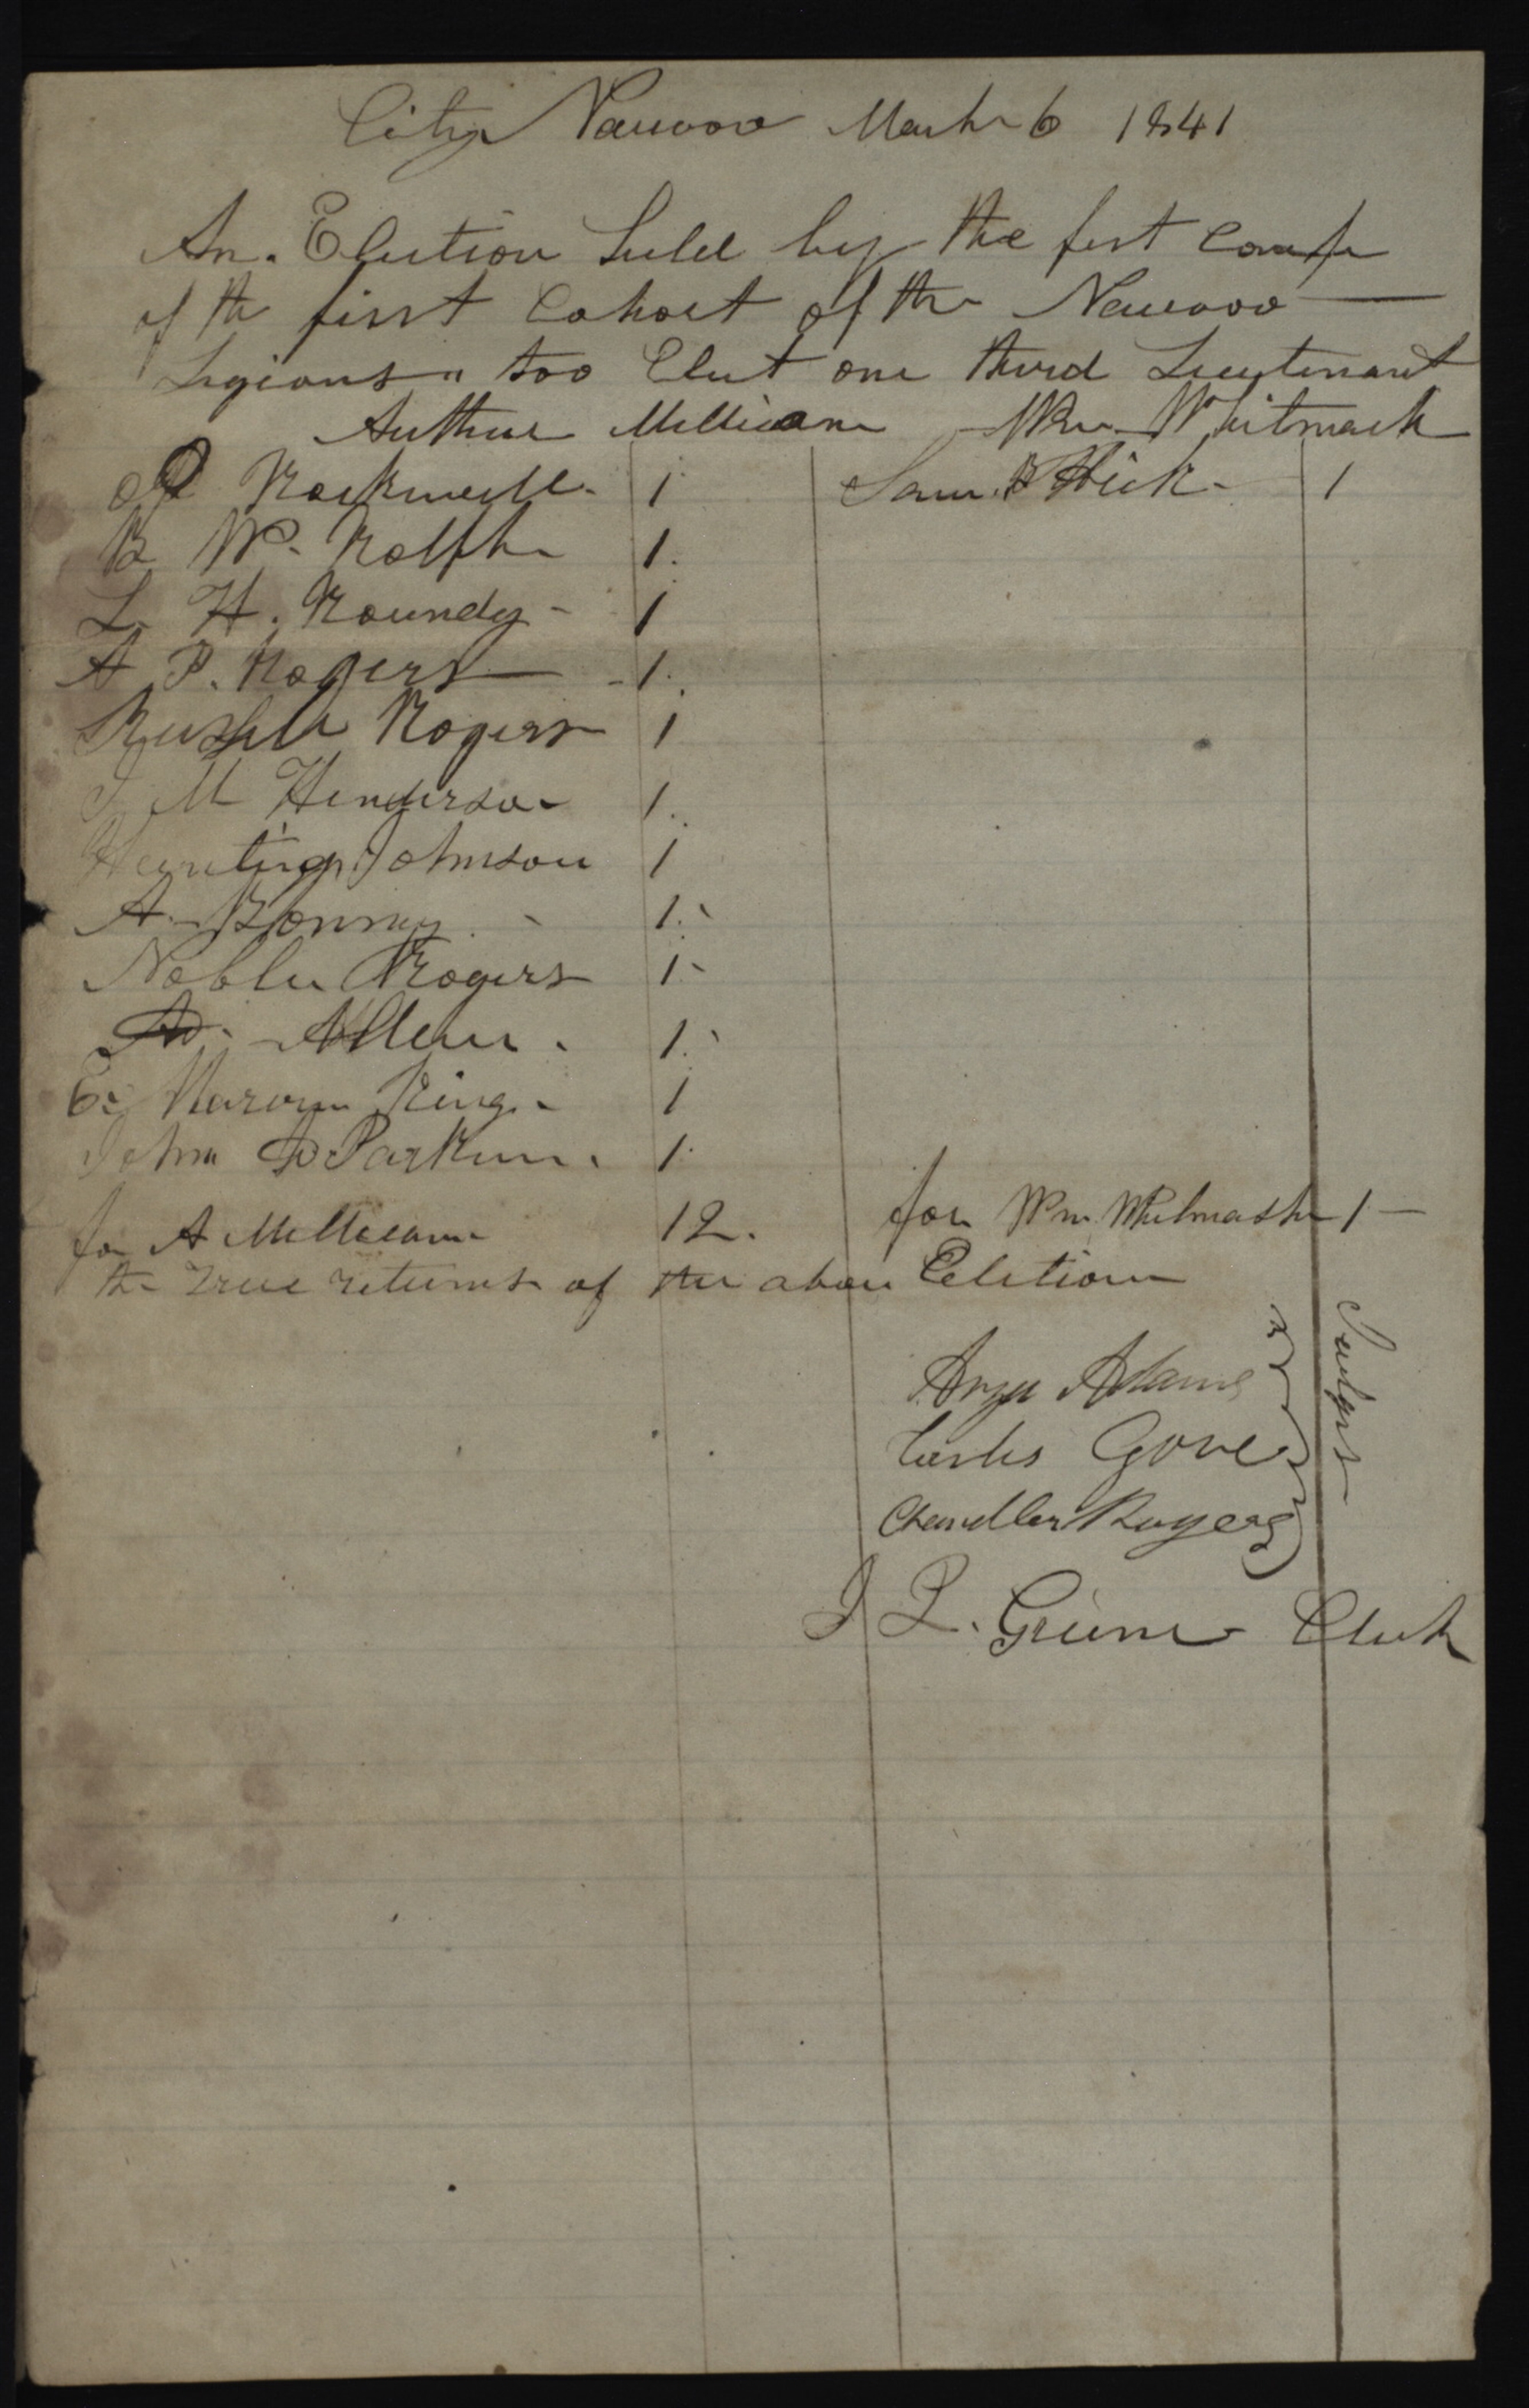 City Nauvoo March 6 1841
An. Election held by the first Comp
of the first Cohort of the Nauvoo
Legions " too Elect one third Lieutenant
Arthur Millican Wm. Whitmash
O P Rockwell. 1 Sam. Hick. 1
B W. Rolfh 1.
L. H. Roundy 1
A P. Rogers 1.
Russell Rogers 1
J M Henderson 1.
Hunting Johnson 1
A. Bonny 1.
Noble Rogers 1
A. Allen. 1.
E. Marvin King. 1
John D Parker. 1.
for A Millican 12. for Wm. Whitmash 1
the True returns of the above Election
Arza Adams
Carlos Gove
Chandler Rogers
Judges
J P. Greene Clerk